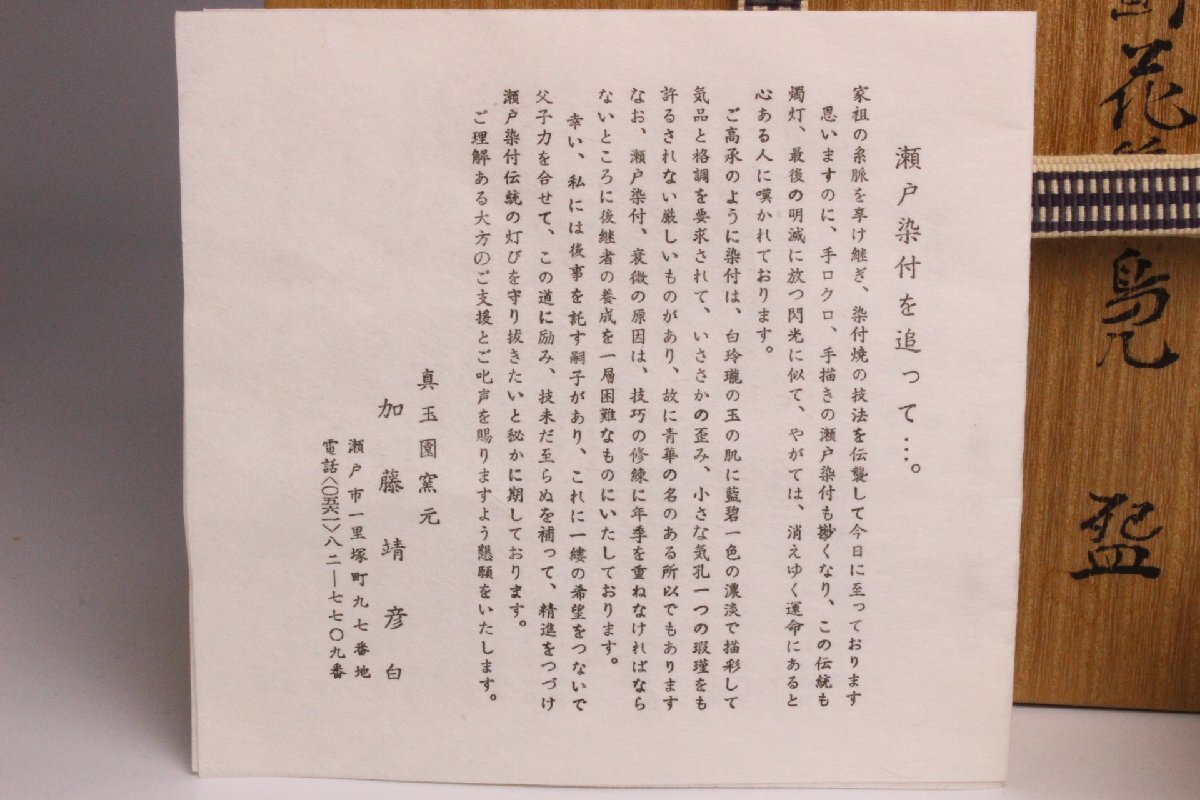 瀬戸染付を追って…。
家祖の系脈を享け継ぎ、染付焼の技法を伝襲して今日に至っております
思いますのに、手ロクロ、手描きの瀬戸染付も尠くなり、この伝統も
燭灯、最後の明滅に放つ閃光に似て、やがては、消えゆく運命にあると
心ある人に嘆かれております。
ご高承のように染付は、白玲瓏の玉の肌に藍碧一色の濃淡で描彩して
気品と格調を要求されて、いささかの歪み、小さな気孔一つの瑕瑾をも
許るされない厳しいものがあり、故に青華の名のある所以でもあります
なお、瀬戸染付、衰微の原因は、技巧の修練に年季を重ねなければなら
ないところに後継者の養成を一層困難なものにいたしております。
幸い、私には後事を託す嗣子があり、これに一縷の希望をつないで
父子力を合せて、この道に励み、技未だ至らぬを補って、精進をつづけ
瀬戸染付伝統の灯びを守り抜きたいと秘かに期しております。
ご理解ある大方のご支援とご叱声を賜りますよう懇願をいたします。
真玉園窯元
加藤靖彦白
瀬戸市一里塚町九七番地
電話〈〇五六一〉八二―七七〇九番
花
鳥
盌